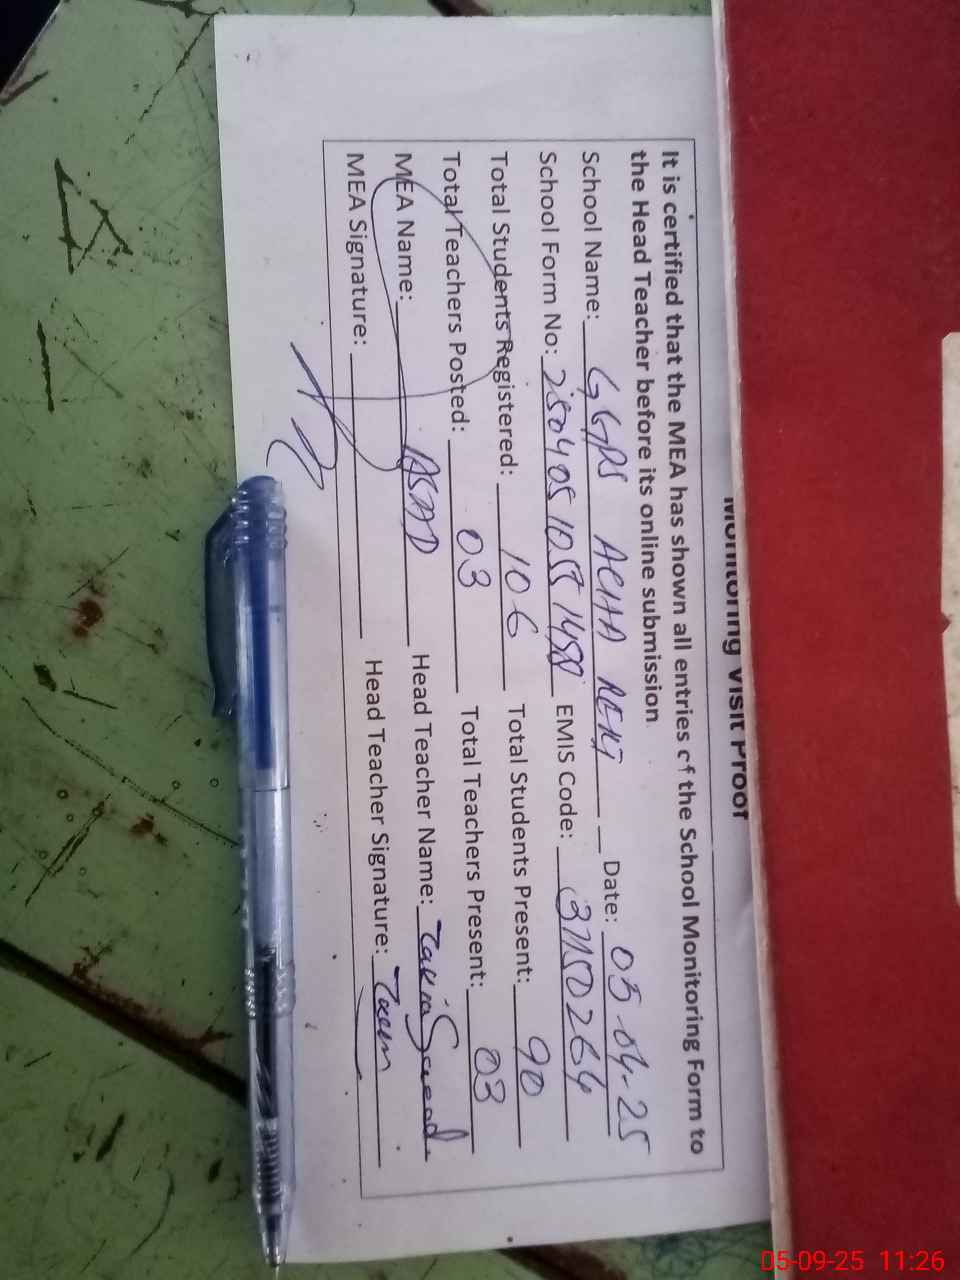 Monitoring Visit Proof
It is certified that the MEA has shown all entries of the School Monitoring Form to
the Head Teacher before its online submission
School Name: GGPS Date: 05-04-25
School Form No: EMIS Code: 37150264
Total Students Registered: 106 Total Students Present: 90
Total Teachers Posted: 03 Total Teachers Present: 03
MEA Name: ASAD Head Teacher Name: Saeed
MEA Signature: Head Teacher Signature:
05-09-25 11:26